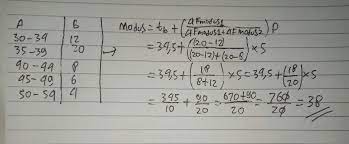 A B
30-34 12
35-39 20
40-44 8
45-49 6
50-54 4
Modus = tb + (ΔFmodus1 / ΔFmodus1+ΔFmodus2) P
= 39,5 + ((20-12) / (20-12)+(20-8)) x 5
= 39,5 + (18 / 8+12) x 5 = 39,5 + (18/20) x 5
= 395/10 + 90/20 = 670+90/20 = 760/20 = 38